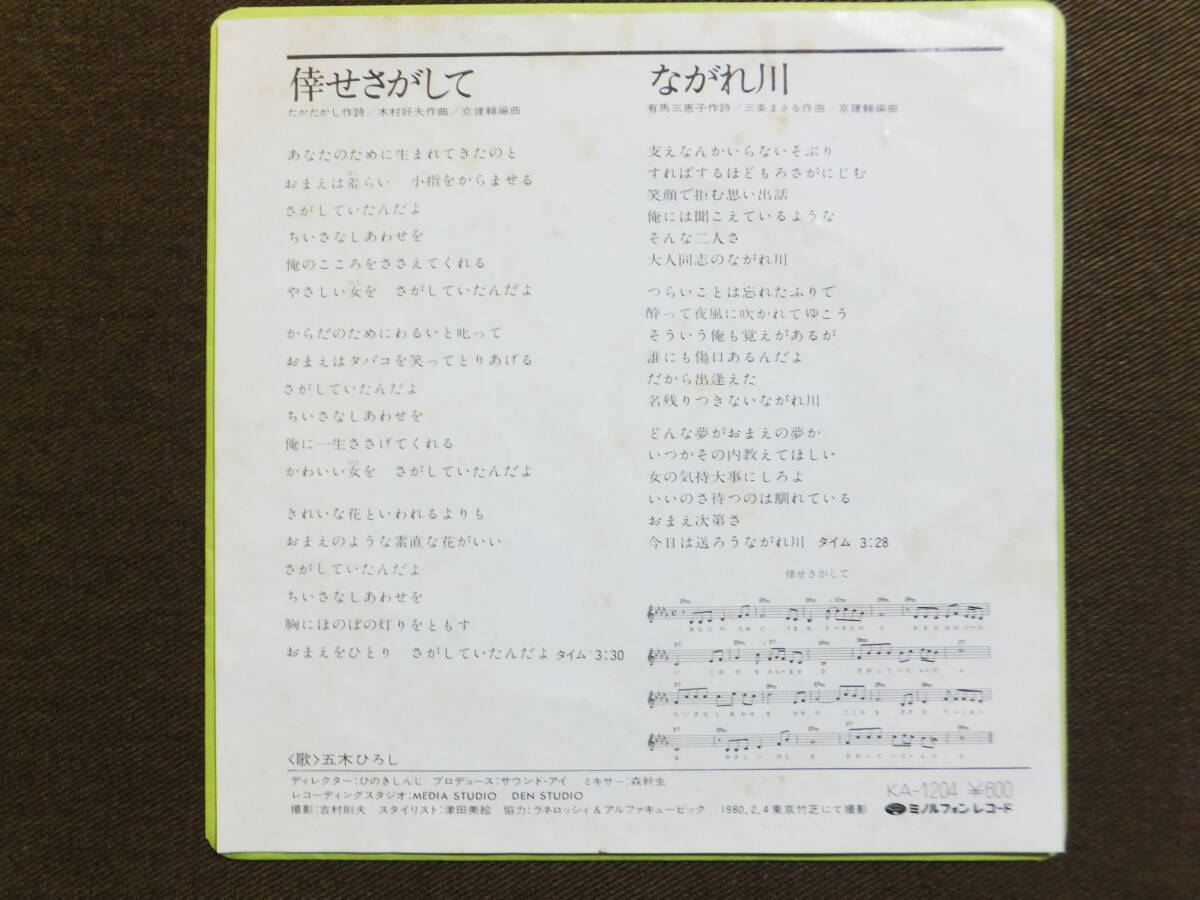 倖せさがして
たかたかし作詩／木村好夫作曲／京建輔編曲
あなたのために生まれてきたのと
おまえは羞らい　小指をからませる
さがしていたんだよ
ちいさなしあわせを
俺のこころをささえてくれる
やさしい女を　さがしていたんだよ
からだのためにわるいと叱って
おまえはタバコを笑ってとりあげる
さがしていたんだよ
ちいさなしあわせを
俺に一生ささげてくれる
かわいい女を　さがしていたんだよ
きれいな花といわれるよりも
おまえのような素直な花がいい
さがしていたんだよ
ちいさなしあわせを
胸にほのぼの灯りをともす
おまえをひとり　さがしていたんだよ タイム 3:30
〈歌〉五木ひろし
ながれ川
有馬三恵子作詩／三条まさる作曲／京建輔編曲
支えなんかいらないそぶり
すればするほどもろさがにじむ
笑顔で拒む思い出話
俺には聞こえているような
そんな二人さ
大人同志のながれ川
つらいことは忘れたふりで
酔って夜風に吹かれてゆこう
そういう俺も覚えがあるが
誰にも傷口あるんだよ
だから出逢えた
名残りつきないながれ川
どんな夢がおまえの夢か
いつかその内教えてほしい
女の気持大事にしろよ
いいのさ待つのは馴れている
おまえ次第さ
今日は送ろうながれ川 タイム 3:28
倖せさがして
ディレクター：ひのきしんじ　プロデュース：サウンド・アイ　ミキサー：森幹生
レコーディングスタジオ：MEDIA STUDIO　DEN STUDIO
撮影：吉村則夫　スタイリスト：津田美絵　協力：ラネロッシィ＆アルファキュービック　1980，2，4東京竹芝にて撮影
KA-1204 ¥600
ミノルフォン レコード